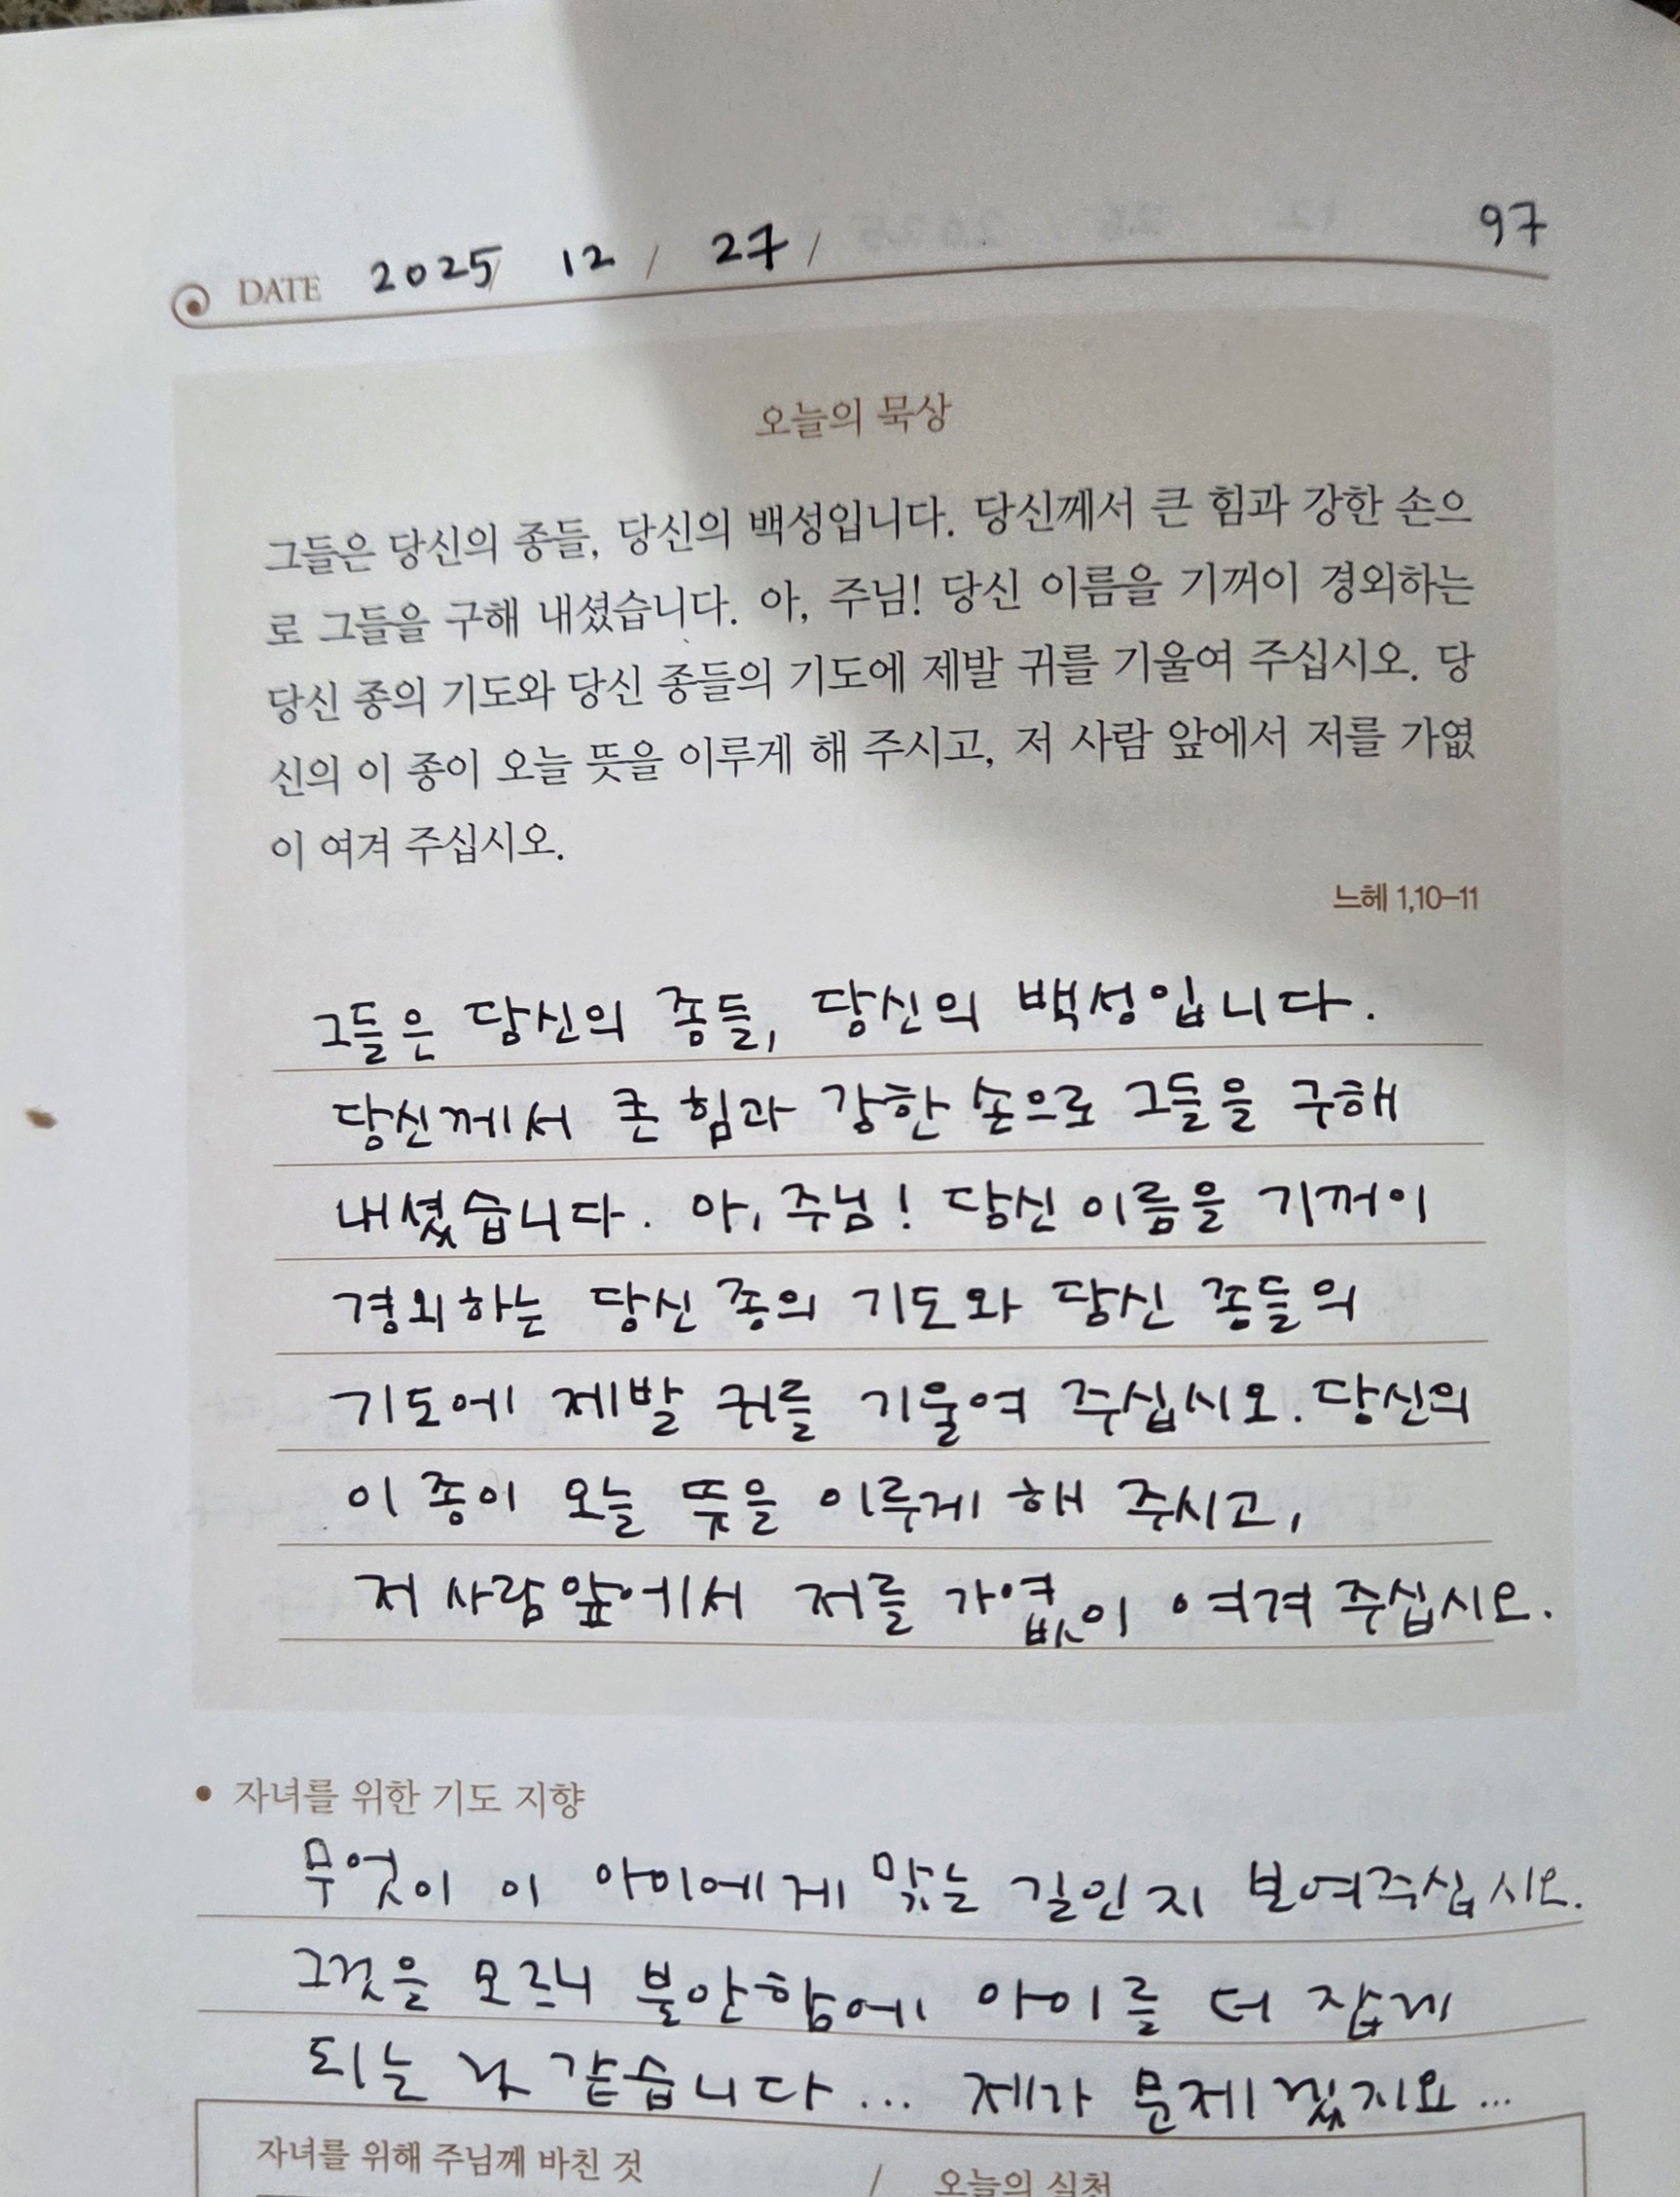 DATE 2025 / 12 / 27 / 97
오늘의 묵상
그들은 당신의 종들, 당신의 백성입니다. 당신께서 큰 힘과 강한 손으
로 그들을 구해 내셨습니다. 아, 주님! 당신 이름을 기꺼이 경외하는
당신 종의 기도와 당신 종들의 기도에 제발 귀를 기울여 주십시오. 당
신의 이 종이 오늘 뜻을 이루게 해 주시고, 저 사람 앞에서 저를 가엾
이 여겨 주십시오.
느헤 1,10-11
그들은 당신의 종들, 당신의 백성입니다.
당신께서 큰 힘과 강한 손으로 그들을 구해
내셨습니다. 아, 주님! 당신 이름을 기꺼이
경외하는 당신 종의 기도와 당신 종들의
기도에 제발 귀를 기울여 주십시오. 당신의
이 종이 오늘 뜻을 이루게 해 주시고,
저 사람 앞에서 저를 가엾이 여겨 주십시오.
• 자녀를 위한 기도 지향
무엇이 이 아이에게 맞는 길인지 보여주십시오.
그것을 모르니 불안함에 아이를 더 잡게
되는 것 같습니다... 제가 문제겠지요...
자녀를 위해 주님께 바친 것 / 오늘의 실천